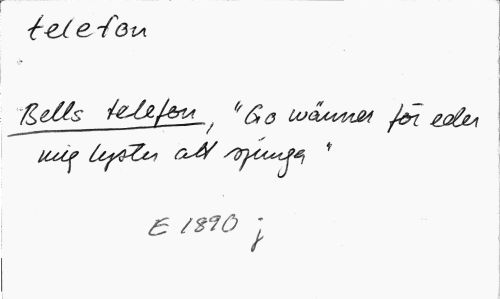 telefon
Bells telefon, "Go wänner för eder
mig lyster att sjunga"
E 1890 j